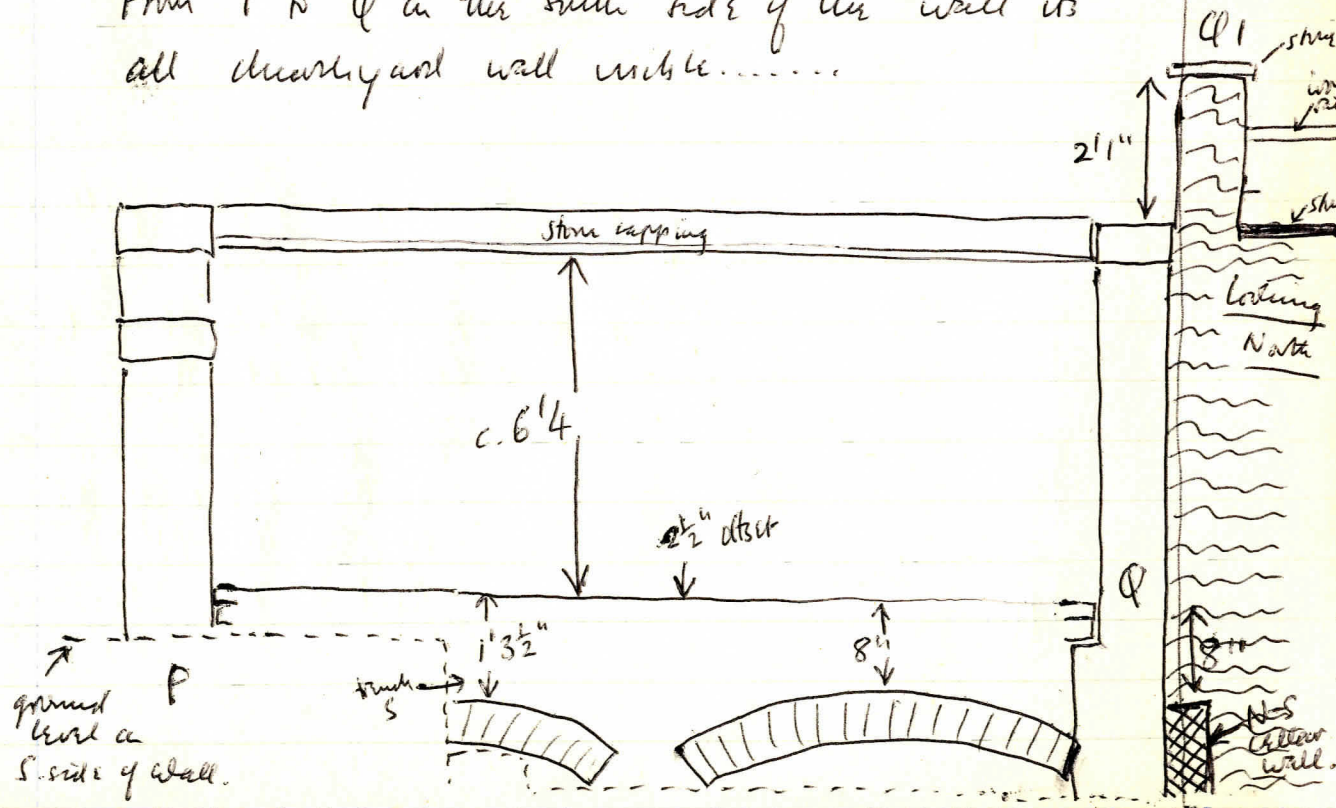 From P to Q on the south side of the wall its
all churchyard wall visible.......
Q1
2'1"
stone capping
Looking
North
c. 6'4
2½" offset
Q
1'3½"
8"
8"
trench
S
P
ground
level on
S. side of wall.
N-S
cellar
wall.